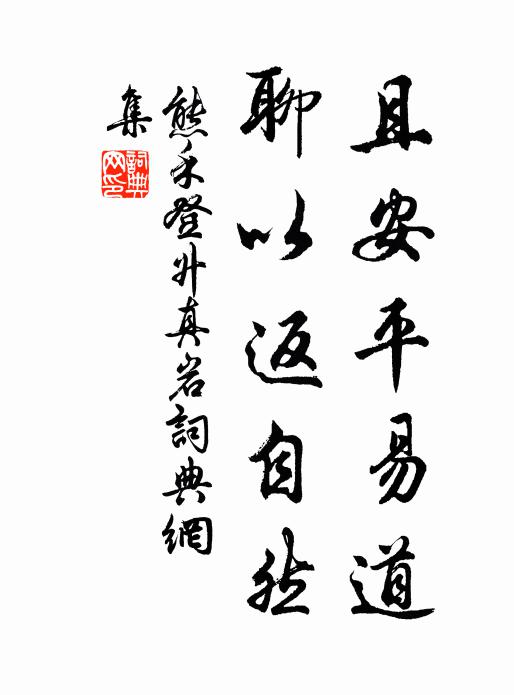 且安平易道
聊以返自然
熊禾登升真岩詞典網
集
詞典
网印